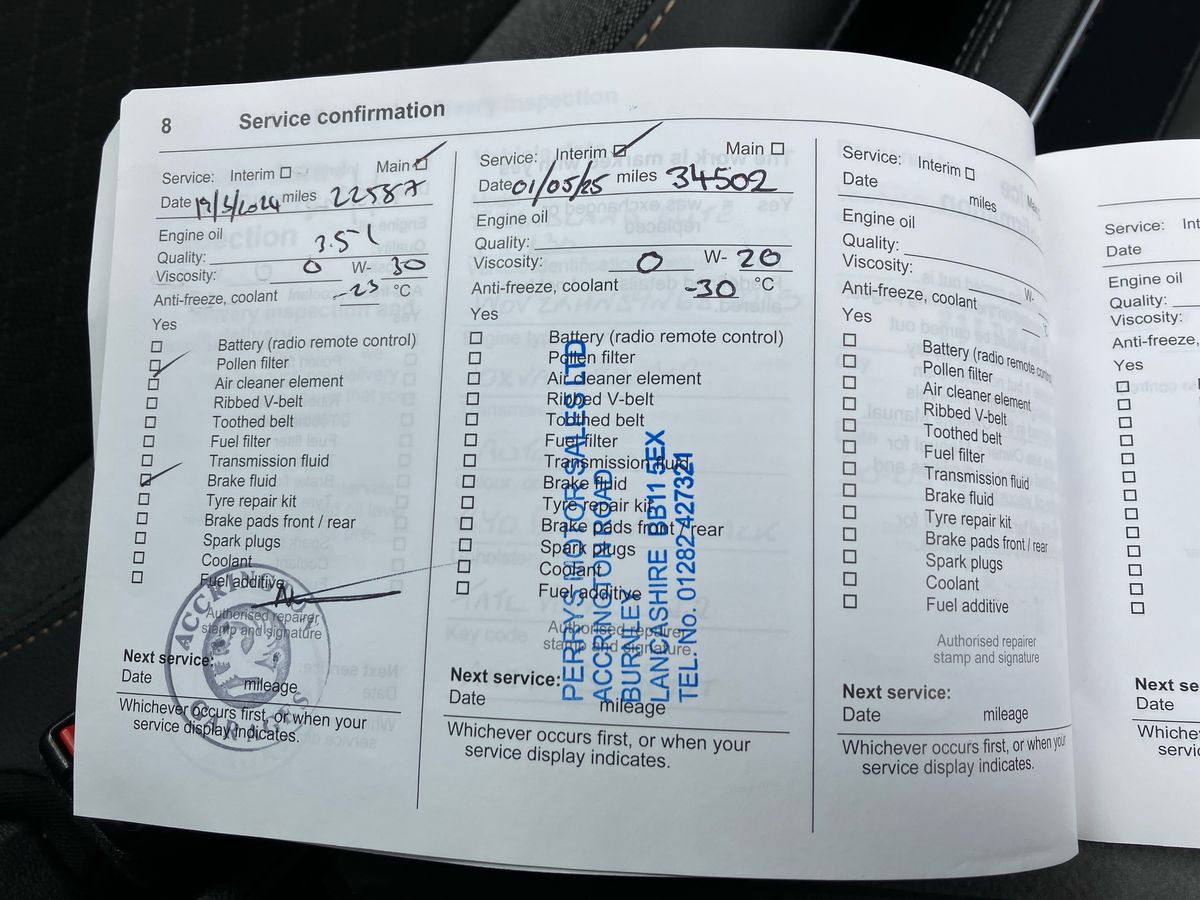 8 Service confirmation
Service: Interim Main
Date 19/3/2024 miles 22587
Engine oil
Quality: 3.5-1
Viscosity: 0 W- 30
Anti-freeze, coolant °C
Yes
Battery (radio remote control)
Pollen filter
Air cleaner element
Ribbed V-belt
Toothed belt
Fuel filter
Transmission fluid
Brake fluid
Tyre repair kit
Brake pads front / rear
Spark plugs
Coolant
Fuel additive
Authorised repairer
stamp and signature
ACCRINGTON
GARAGES
Next service:
Date mileage
Whichever occurs first, or when your
service display indicates.
Service: Interim Main
Date 01/05/25 miles 34502
Engine oil
Quality:
Viscosity: 0 W- 20
Anti-freeze, coolant -30 °C
Yes
Battery (radio remote control)
Pollen filter
Air cleaner element
Ribbed V-belt
Toothed belt
Fuel filter
Transmission fluid
Brake fluid
Tyre repair kit
Brake pads front / rear
Spark plugs
Coolant
Fuel additive
Authorised repairer
stamp and signature
PERRYS MOTOR SALES LTD
ACCRINGTON ROAD
BURNLEY
LANCASHIRE BB11 5EX
TEL. No. 01282 427321
Next service:
Date mileage
Whichever occurs first, or when your
service display indicates.
Service: Interim
Date miles
Engine oil
Quality:
Viscosity: W-
Anti-freeze, coolant
Yes
Battery (radio remote
Pollen filter
Air cleaner element
Ribbed V-belt
Toothed belt
Fuel filter
Transmission fluid
Brake fluid
Tyre repair kit
Brake pads front / rear
Spark plugs
Coolant
Fuel additive
Authorised repairer
stamp and signature
Next service:
Date mileage
Whichever occurs first, or when your
service display indicates.
Service: Int
Date
Engine oil
Quality:
Viscosity:
Anti-freeze,
Yes
Next se
Date
Whiche
servic